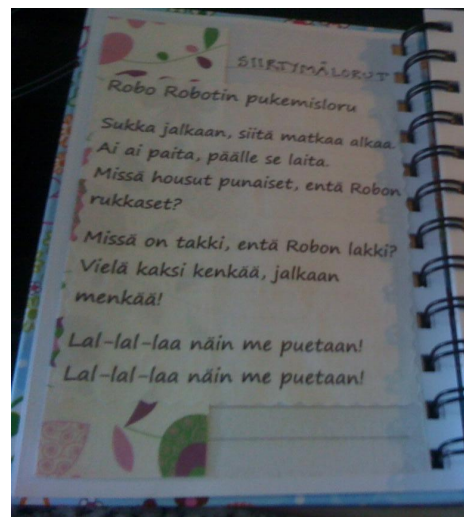 SIIRTYMÄLORUT
Robo Robotin pukemisloru
Sukka jalkaan, siitä matkaa alkaa.
Ai ai paita, päälle se laita.
Missä housut punaiset, entä Robon
rukkaset?
Missä on takki, entä Robon lakki?
Vielä kaksi kenkää, jalkaan
menkää!
Lal-lal-laa näin me puetaan!
Lal-lal-laa näin me puetaan!